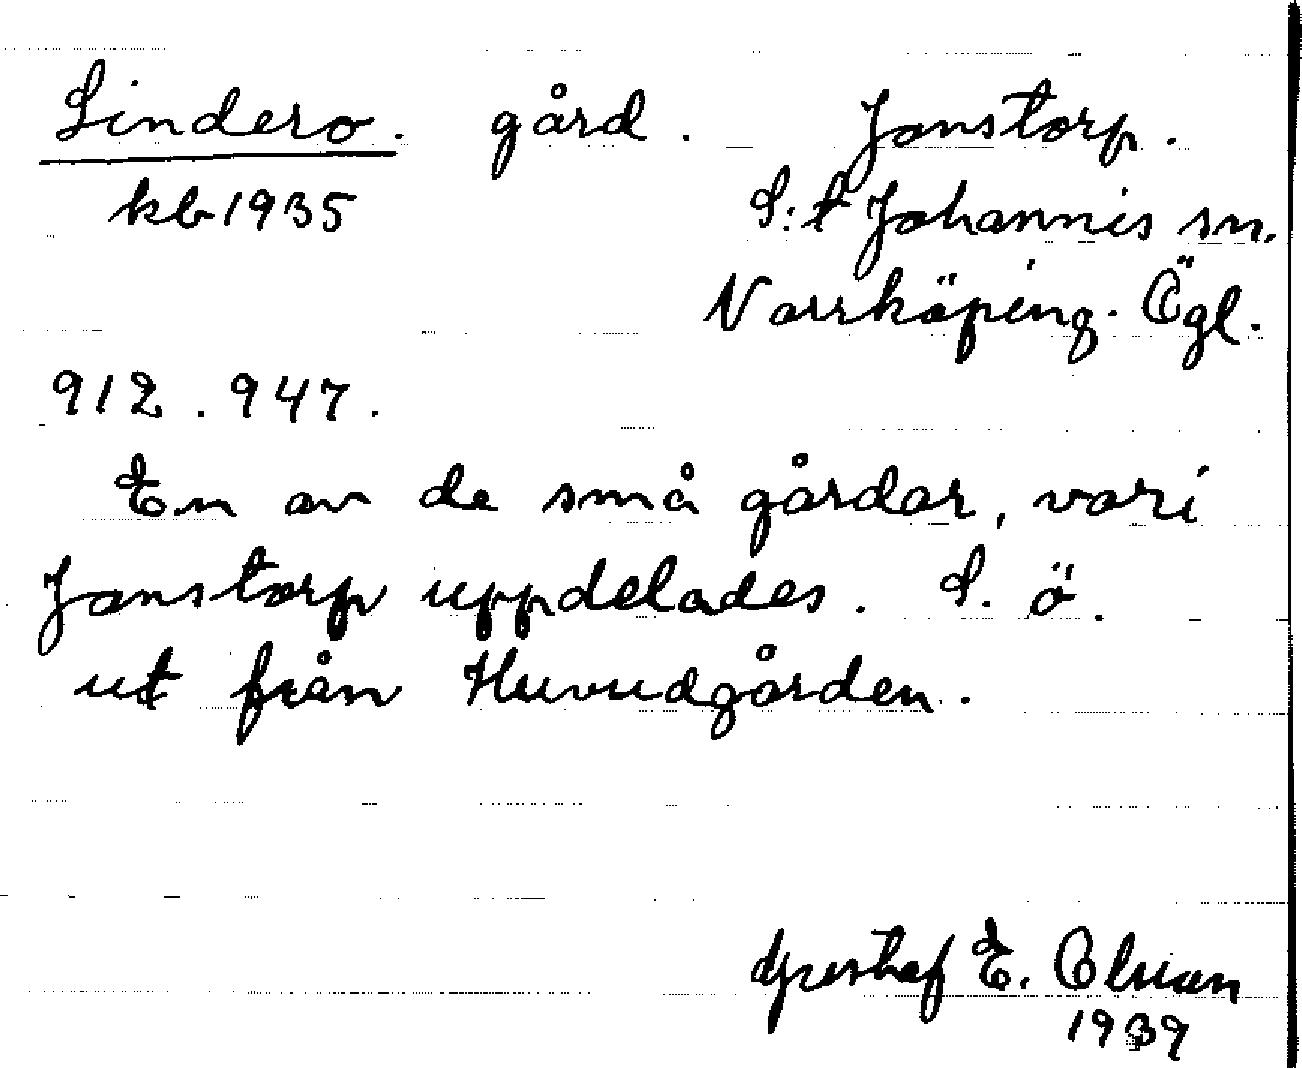 Lindero. gård. Janstorp.
kb 1935 S:t Johannis sn.
Norrköping. Ögl.
912. 947.
En av de små gårdar, vari
Janstorp uppdelades. S. ö.
ut från Huvudgården.
Gustaf E. Olson
1939